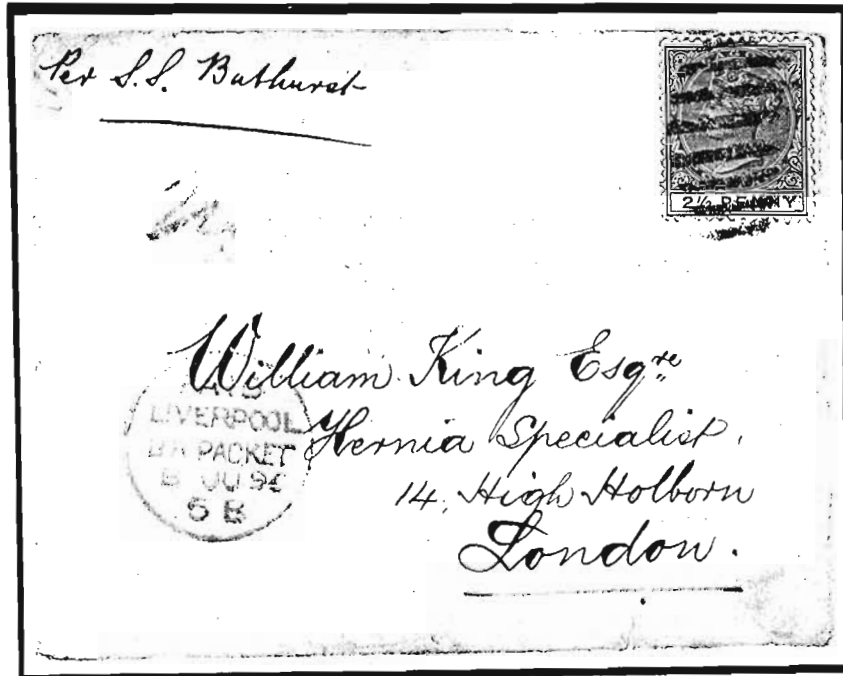 Per S.S. Bathurst
2½ PENNY
William King Esqre
Hernia Specialist,
14, High Holborn
London.
LIVERPOOL
BR PACKET
JU 9
5 B